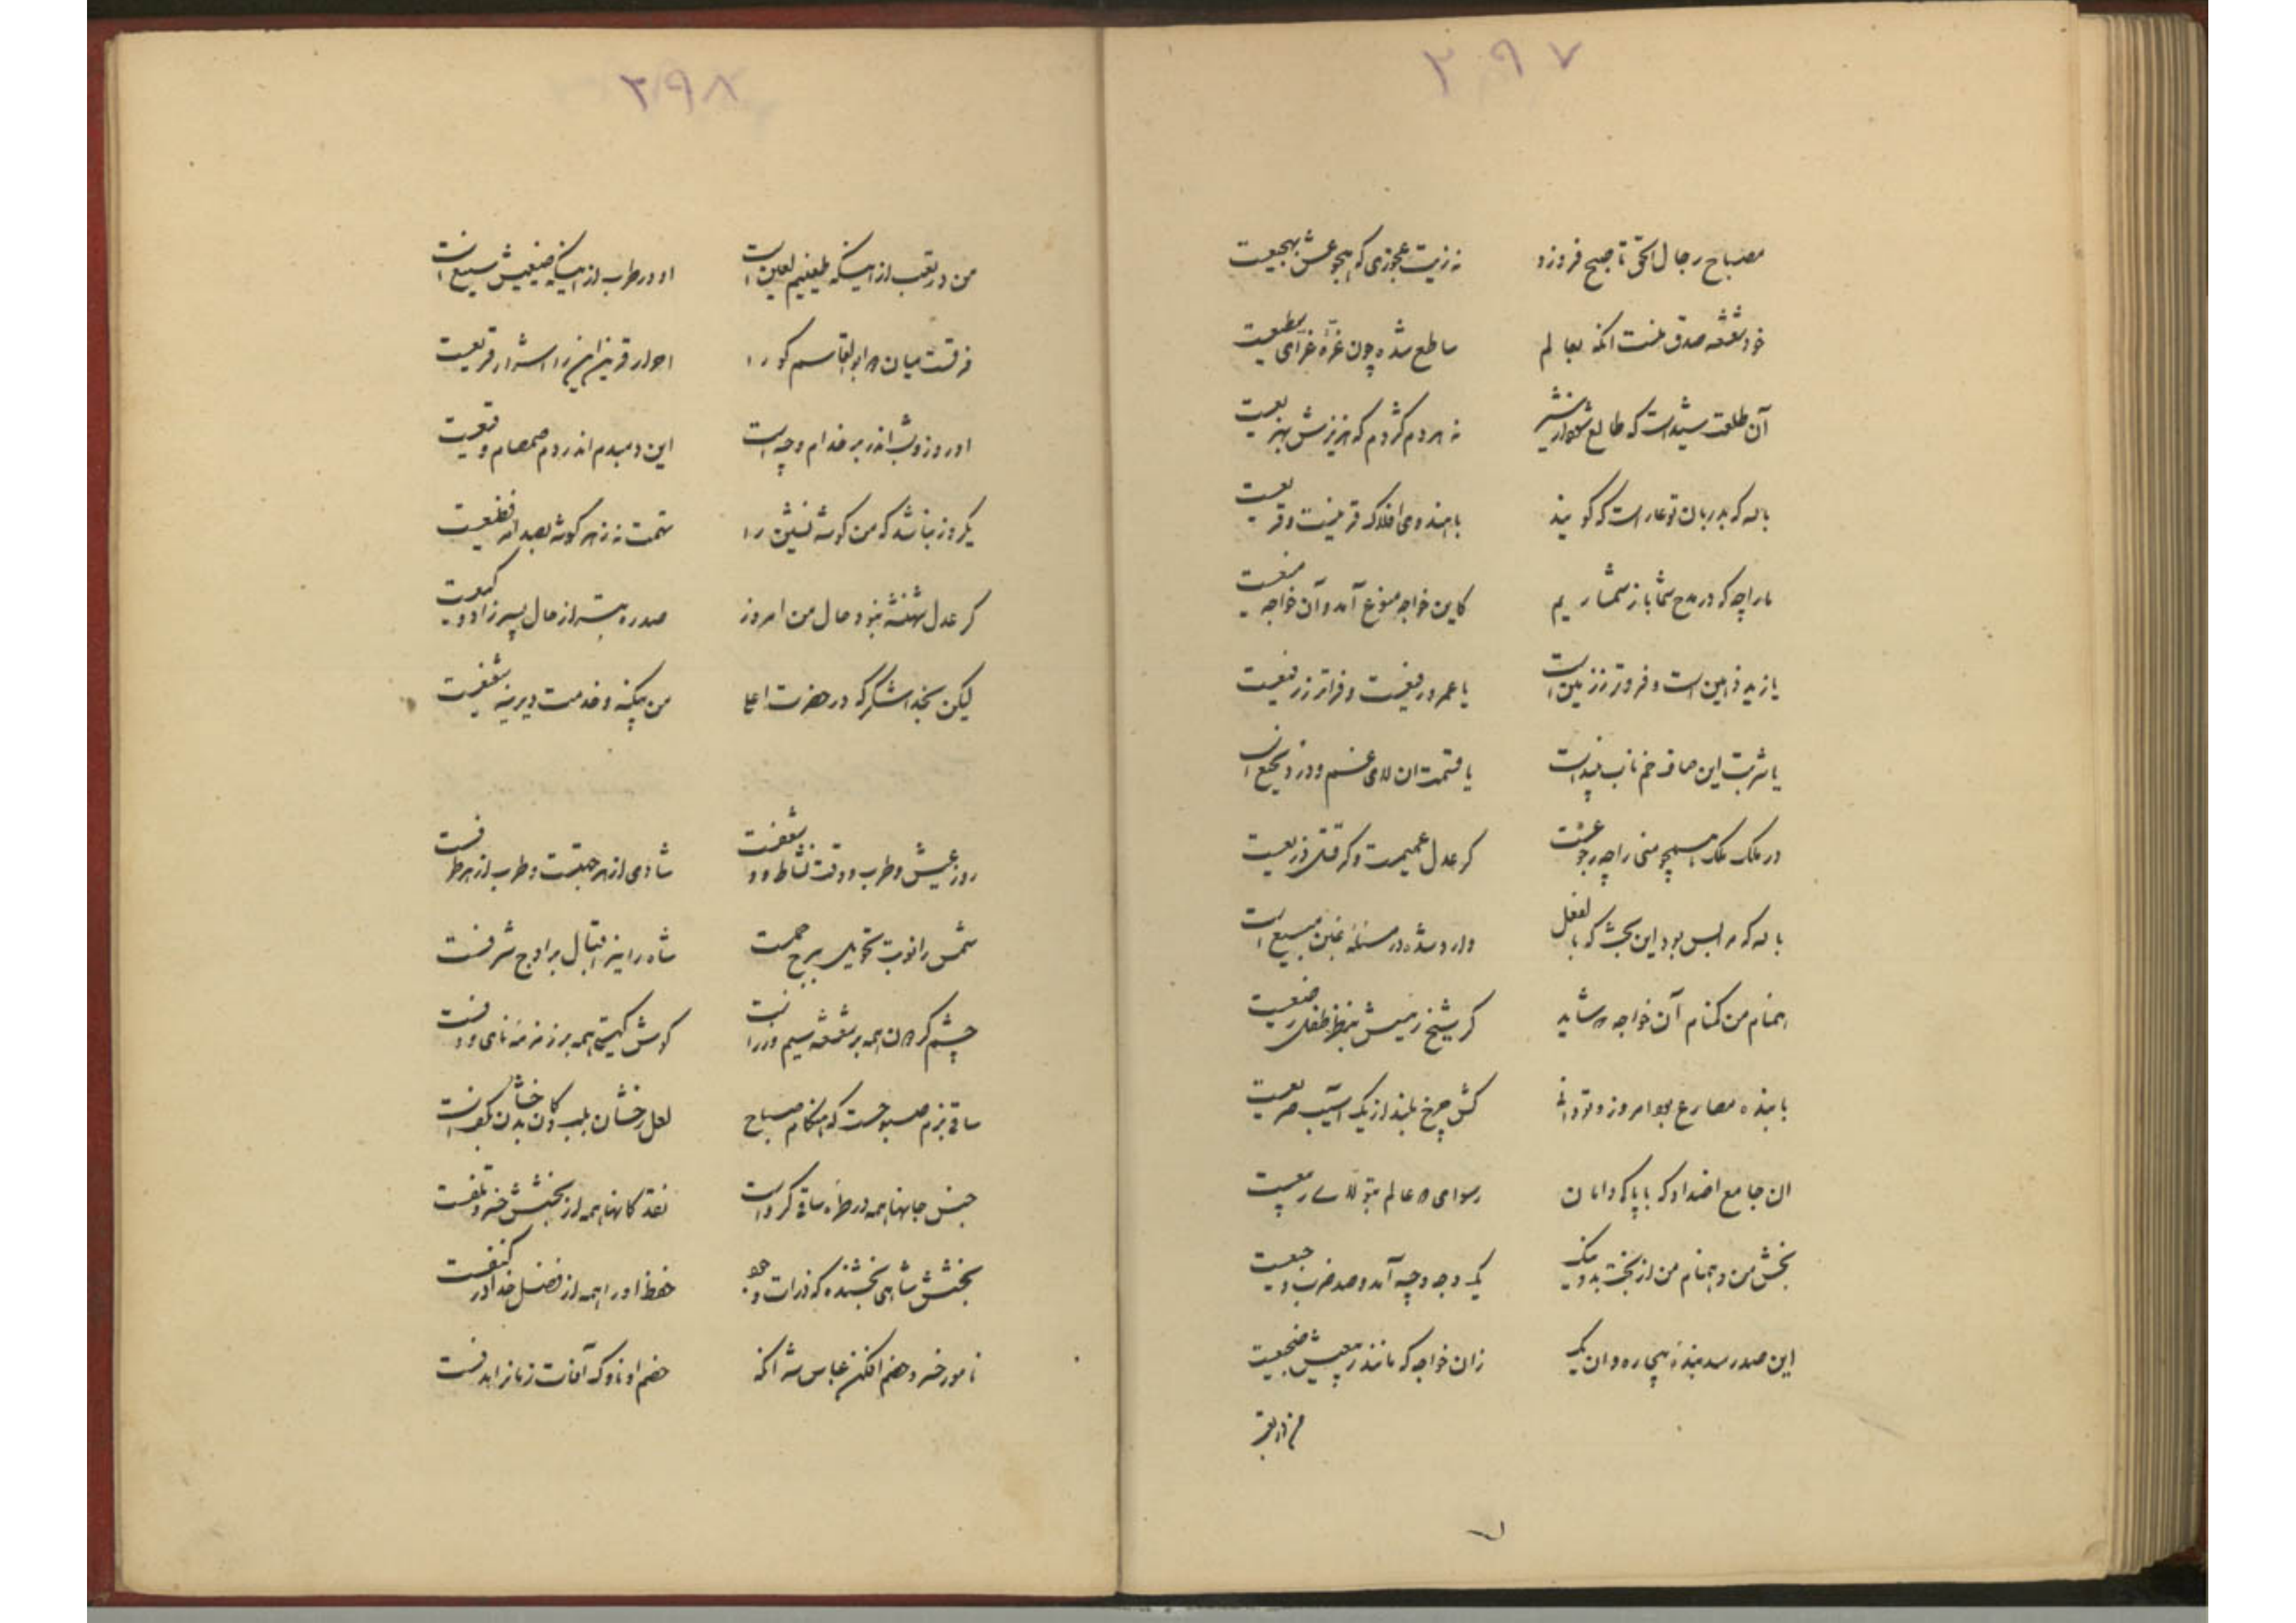 ۲۹۷
مصباح رجال الحق تا صبح فروزد نه زیت عجوزی که همجو عش بهجعیت
خود شعشعه صدق منست انکه بعالم ساطع شده چون غره غرای سطیعیت
آن طلعت شیداست که طالع شود از شر نه هر دم کژدم که هزیزش بهزیعیت
بالله که بدربان تو عار است که گویند با هندوی افلاک قرینست و قریعیت
ما را چه که در مدح شما باز شماریم کاین خواجه منوع آمد و آن خواجه منیعیت
یا زید ذمین است و فروتر ز زمین است یا عمرو رفیعست و فراتر ز رفیعیت
یا شربت این صاف خم ناب نبید است یا قسمت ان لای غم و درد نجیع است
در ملک ملک همچو منی را چه رجوعست کر عدل عمیمست و کر قتل ذریعیت
بالله که مرا بس بود این بحث که بالفعل وارد شده در مسئله غبن مبیع است
همنام من کمنام آن خواجه که شاید کر شیخ رئیسش بنظر طفل رضیعیت
با بنده مصارع بود امروز و تو دانی کش چرخ بلند از یک آسیب صریعیت
ان جامع اضداد که با پاک دامانان رسوای همه عالم بتولای ربیعیت
بخش من و همنام من از بخت بد و نیک یک وجه وجیه آمد و صد ضرب وجیعیت
این صدر سد بنده بیچاره و ان یک زان خواجه که مانند ربیعیش ضجیعیت
من در تعب
۲۹۸
من در تعب از اینکه طبیعیم لعین است او در طرب از اینکه ضیعیش سیع است
فرقست میان ابوالقاسم کو را احرار قرین این را اشرار قریعیت
او روز و شب اندر بر خدام وجیه است این دمبدم اندر دم صمصام وقیعیت
یکروز نباشد که من کوشه نشین را تهمت نه ز هر کوشه بصد امر فظیعیت
کر عدل شهنشه نبود حال من امروز صد ره بتر از حال پسرزاد وکیعیت
لیکن بخدا شکر که در حضرت اعلی من بیکنه و خدمت دیرینه شفیعیت
روز عیش و طرب و وقت نشاط و شعفست شادی از هر جهتست و طرب از هر طرفست
شمس را نوبت تحویل ببرج حملست شاه را نیر اقبال بر اوج شرفست
چشم کردون همه بر شعشعه سیم و زر است کوش کیتی همه بر زمزمه نای و دفست
ساقی بزم صبوحست که هنکام صباح لعل رخشان بلب و کان بدخشان بکف است
جنس جانها همه در طره ساقی کرو است نقد کانها همه از بخشش خسرو تلفست
بخشش شاهی بخشنده که ذرات وجود حفظ او را همه از فضل خدا در کنفست
نامور خسرو خصم افکن عباس شه آنکه خصم او ناوک آفات زمانرا هدفست